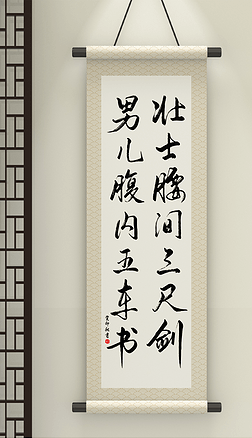 壮士腰间三尺剑
男儿腹内五车书